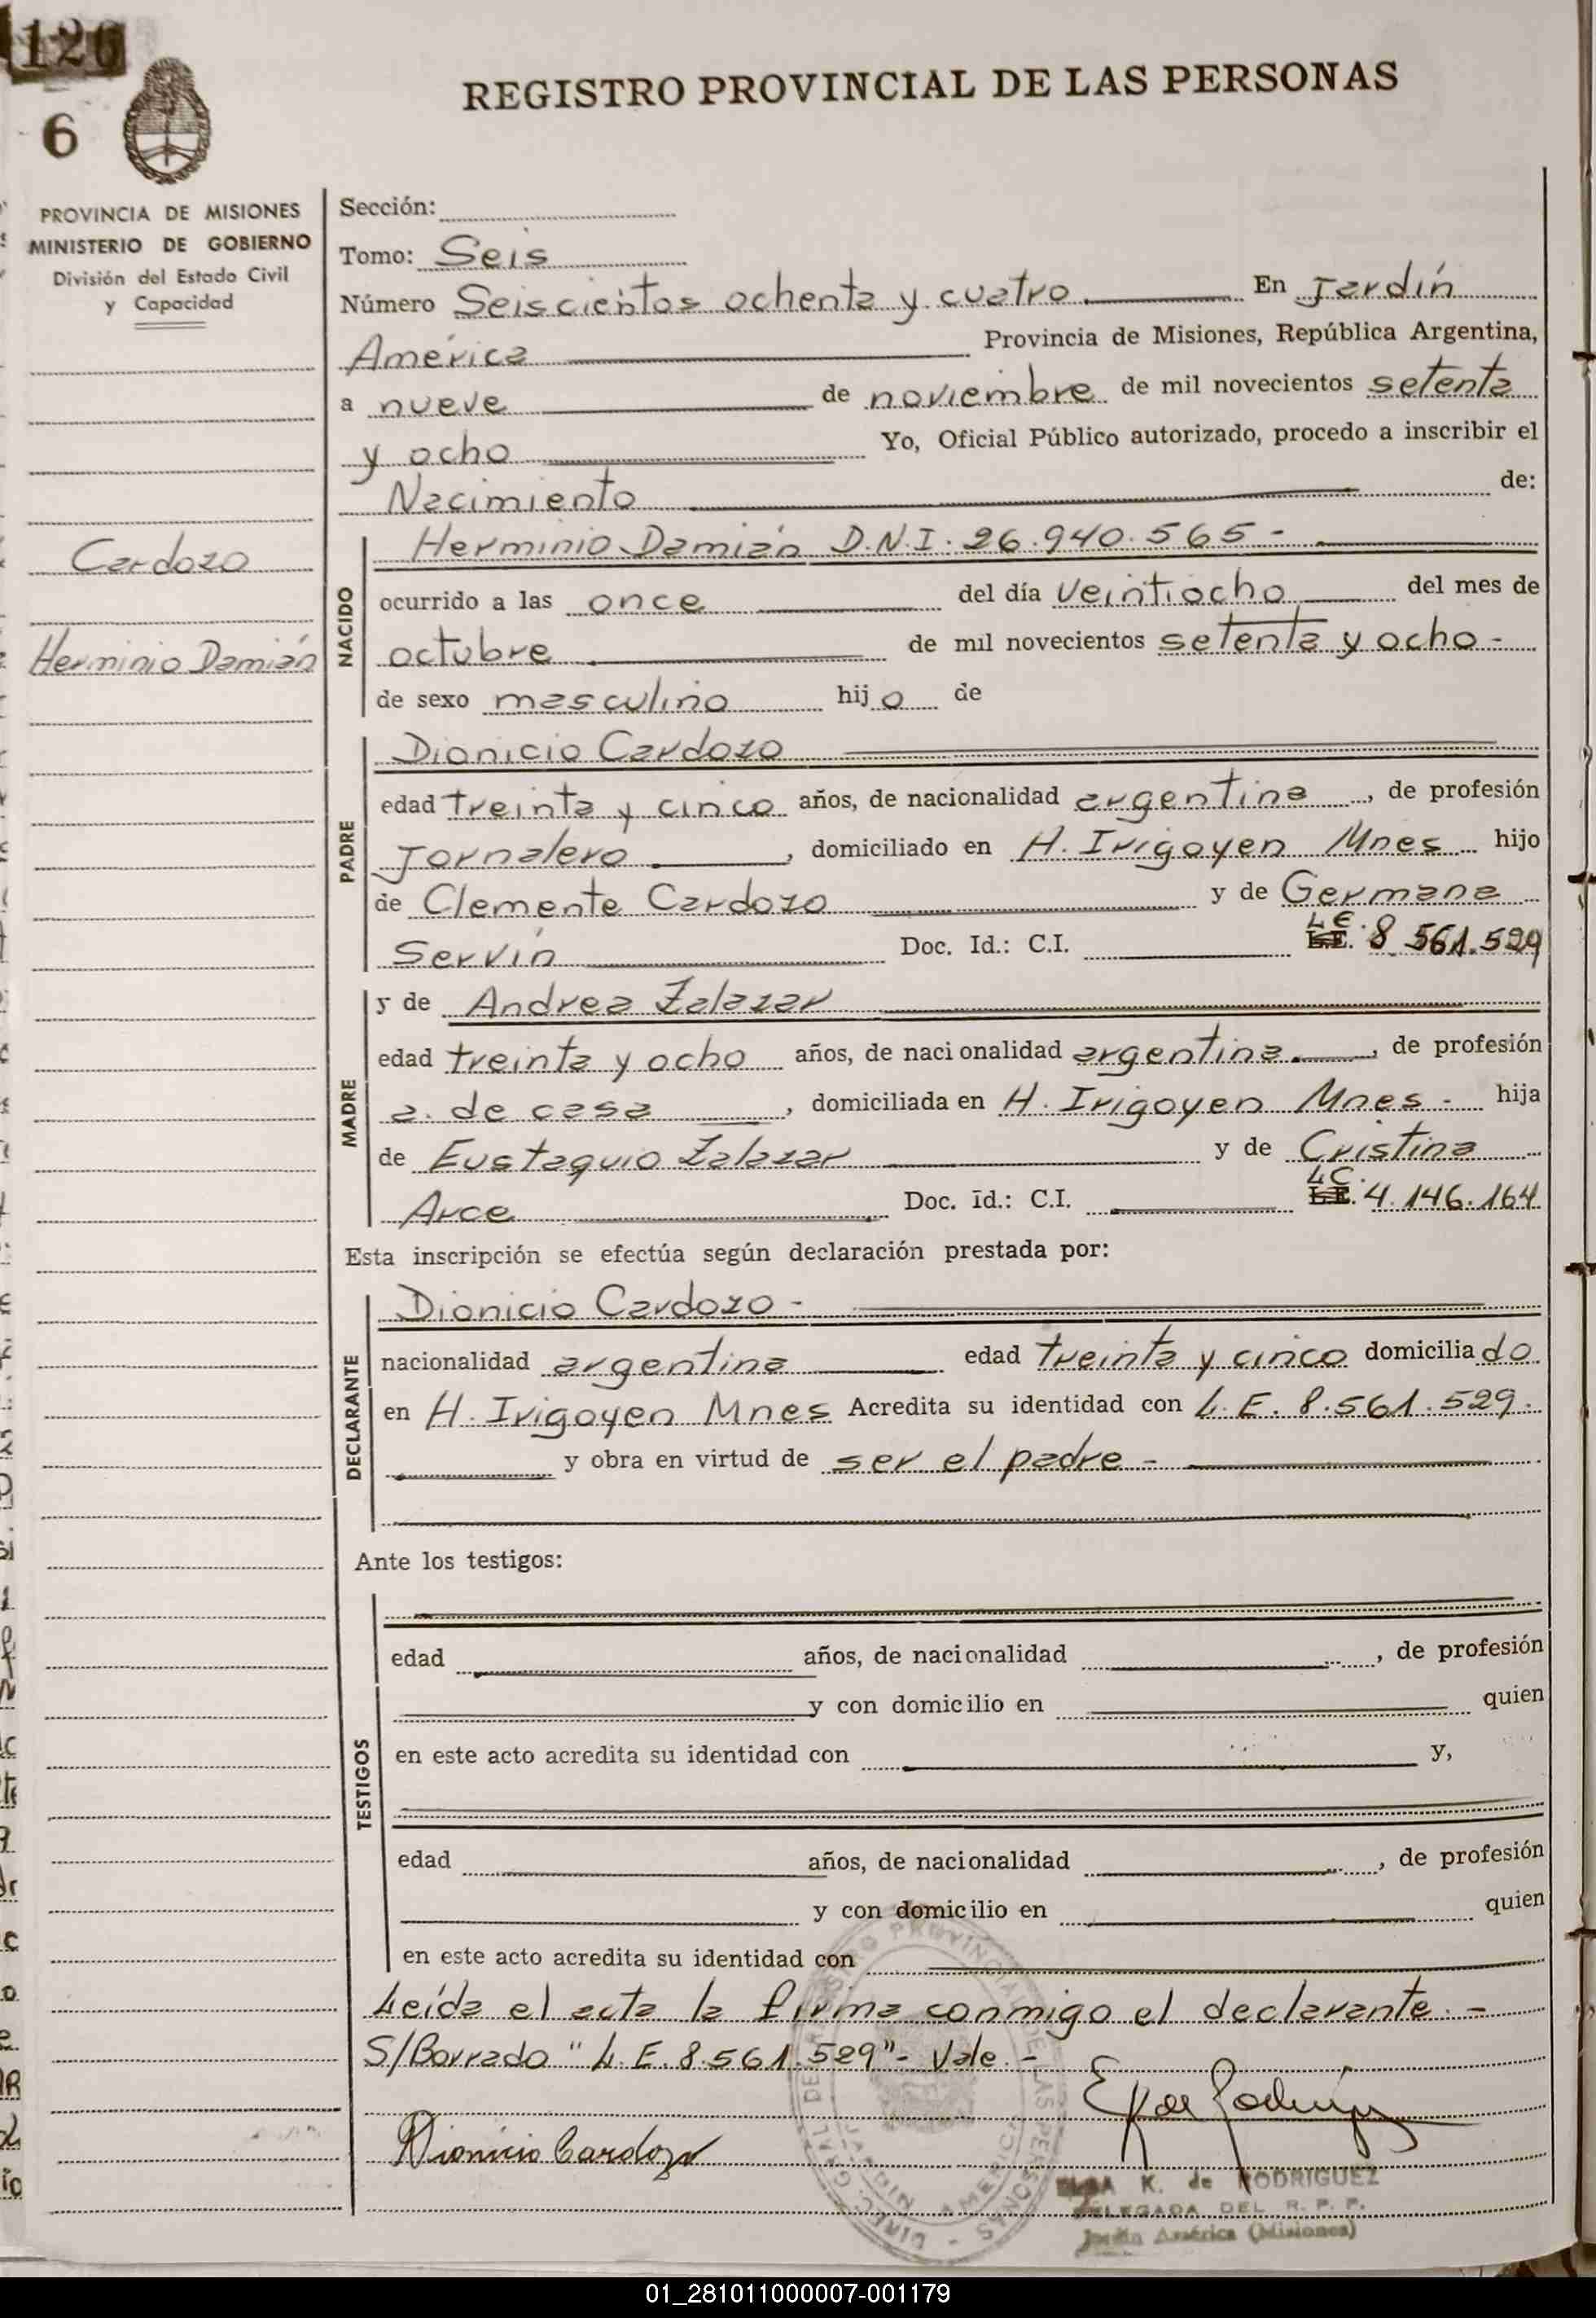 126
6
REGISTRO PROVINCIAL DE LAS PERSONAS
PROVINCIA DE MISIONES
MINISTERIO DE GOBIERNO
División del Estado Civil
y Capacidad
Cardozo
Herminio Damián
Sección:
Tomo: Seis
Número Seiscientos ochenta y cuatro En Jardín
América Provincia de Misiones, República Argentina,
a nueve de noviembre de mil novecientos setenta
y ocho Yo, Oficial Público autorizado, procedo a inscribir el
Nacimiento de:
NACIDO
Herminio Damián D.N.I. 26.940.565 -
ocurrido a las once del día veintiocho del mes de
octubre de mil novecientos setenta y ocho -
de sexo masculino hijo de
PADRE
Dionicio Cardozo
edad treinta y cinco años, de nacionalidad argentina, de profesión
Jornalero, domiciliado en H. Irigoyen Mnes hijo
de Clemente Cardozo y de Germana
Servín Doc. Id.: C.I. L E. 8 561.529
MADRE
y de Andrea Zalazar
edad treinta y ocho años, de nacionalidad argentina, de profesión
a. de casa, domiciliada en H. Irigoyen Mnes - hija
de Eustaquio Zalazar y de Cristina
Arce Doc. Id.: C.I. L C. 4.146.164
Esta inscripción se efectúa según declaración prestada por:
DECLARANTE
Dionicio Cardozo -
nacionalidad argentina edad treinta y cinco domiciliado
en H. Irigoyen Mnes Acredita su identidad con L. E. 8.561.529.
y obra en virtud de ser el padre -
Ante los testigos:
TESTIGOS
edad años, de nacionalidad , de profesión
y con domicilio en quien
en este acto acredita su identidad con y,
edad años, de nacionalidad , de profesión
y con domicilio en quien
en este acto acredita su identidad con
Leída el acta la firma conmigo el declarante. -
S/Borrado "L. E. 8.561.529" - Vale. -
Dionicio Cardozo
DIREC. GRAL. DEL REGISTRO PROVINCIAL DE LAS PERSONAS -
JARDIN AMERICA
ELSA K. de RODRIGUEZ
DELEGADA DEL R. P. P.
Jardín América (Misiones)
01_281011000007-001179